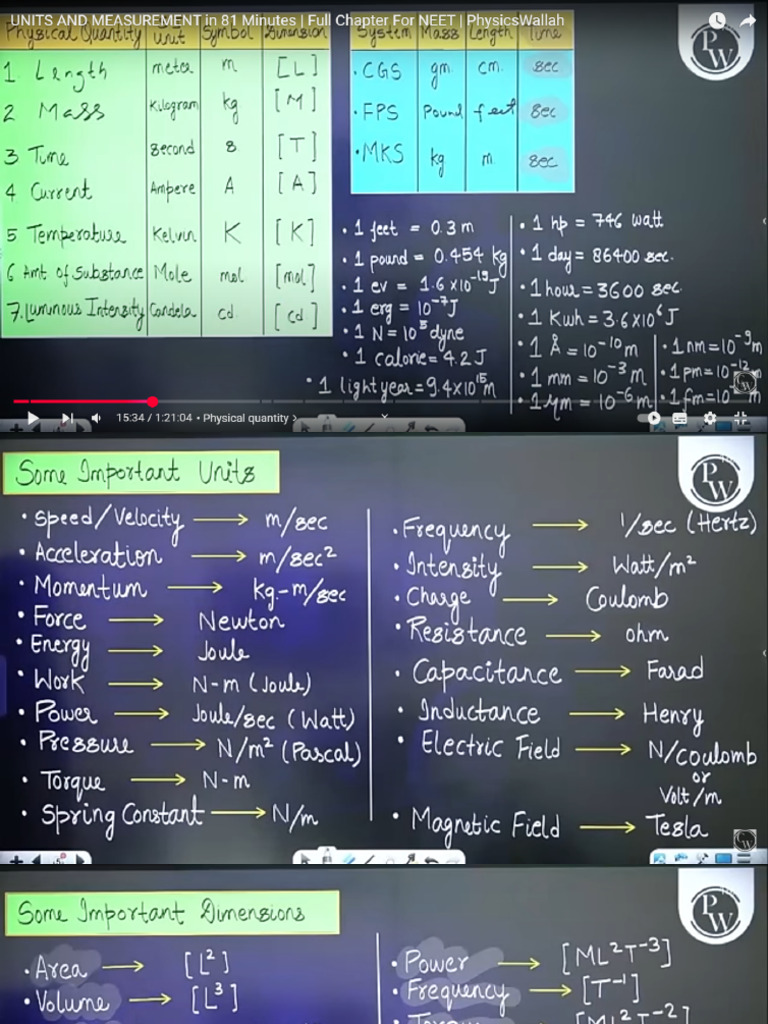 UNITS AND MEASUREMENT in 81 Minutes | Full Chapter For NEET | PhysicsWallah
Physical Quantity Unit Symbol Dimension
1. Length meter m [L]
2 Mass Kilogram kg [M]
3 Time Second s [T]
4 Current Ampere A [A]
5 Temperature Kelvin K [K]
6 Amt of Substance Mole mol [mol]
7. Luminous Intensity Candela cd. [cd]
System Mass Length Time
• CGS gm. cm. sec
• FPS Pound feet sec
• MKS kg m sec
PW
• 1 feet = 0.3 m
• 1 pound = 0.454 kg
• 1 ev = 1.6×10⁻¹⁹J
• 1 erg = 10⁻⁷J
• 1 N = 10⁵ dyne
• 1 calorie = 4.2 J
• 1 light year = 9.4×10¹⁵m
• 1 hp = 746 watt
• 1 day = 86400 sec.
• 1 hour = 3600 sec.
• 1 Kwh = 3.6×10⁶J
• 1 Å = 10⁻¹⁰ m
• 1 mm = 10⁻³ m
• 1 μm = 10⁻⁶ m
• 1 nm = 10⁻⁹ m
• 1 pm = 10⁻¹² m
• 1 fm = 10
15:34 / 1:21:04 • Physical quantity >
Some Important Units
PW
• Speed/Velocity → m/sec
• Acceleration → m/sec²
• Momentum → kg-m/sec
• Force → Newton
• Energy → Joule
• Work → N-m (Joule)
• Power → Joule/sec (Watt)
• Pressure → N/m² (Pascal)
• Torque → N-m
• Spring Constant → N/m
• Frequency → 1/sec (Hertz)
• Intensity → Watt/m²
• Charge → Coulomb
• Resistance → ohm
• Capacitance → Farad
• Inductance → Henry
• Electric Field → N/coulomb
or
Volt/m
• Magnetic Field → Tesla
Some Important Dimensions
PW
• Area → [L²]
• Volume → [L³]
• Power → [ML²T⁻³]
• Frequency → [T⁻¹]
[ML²T⁻²]